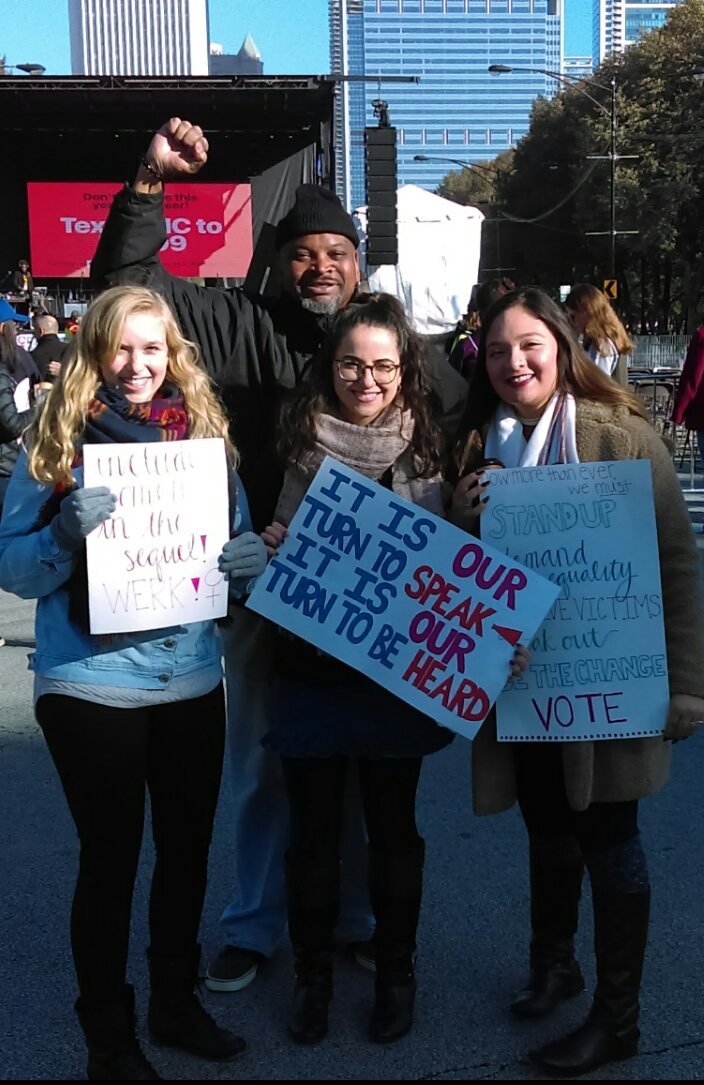 Don't this
year!
Tex IC to
09
include
women
in the
sequel!
WERK!
IT IS OUR
TURN TO SPEAK
IT IS OUR
TURN TO BE HEARD
ow more than ever,
we must
STAND UP
demand
equality
VE VICTIMS
ak out
BE THE CHANGE
VOTE